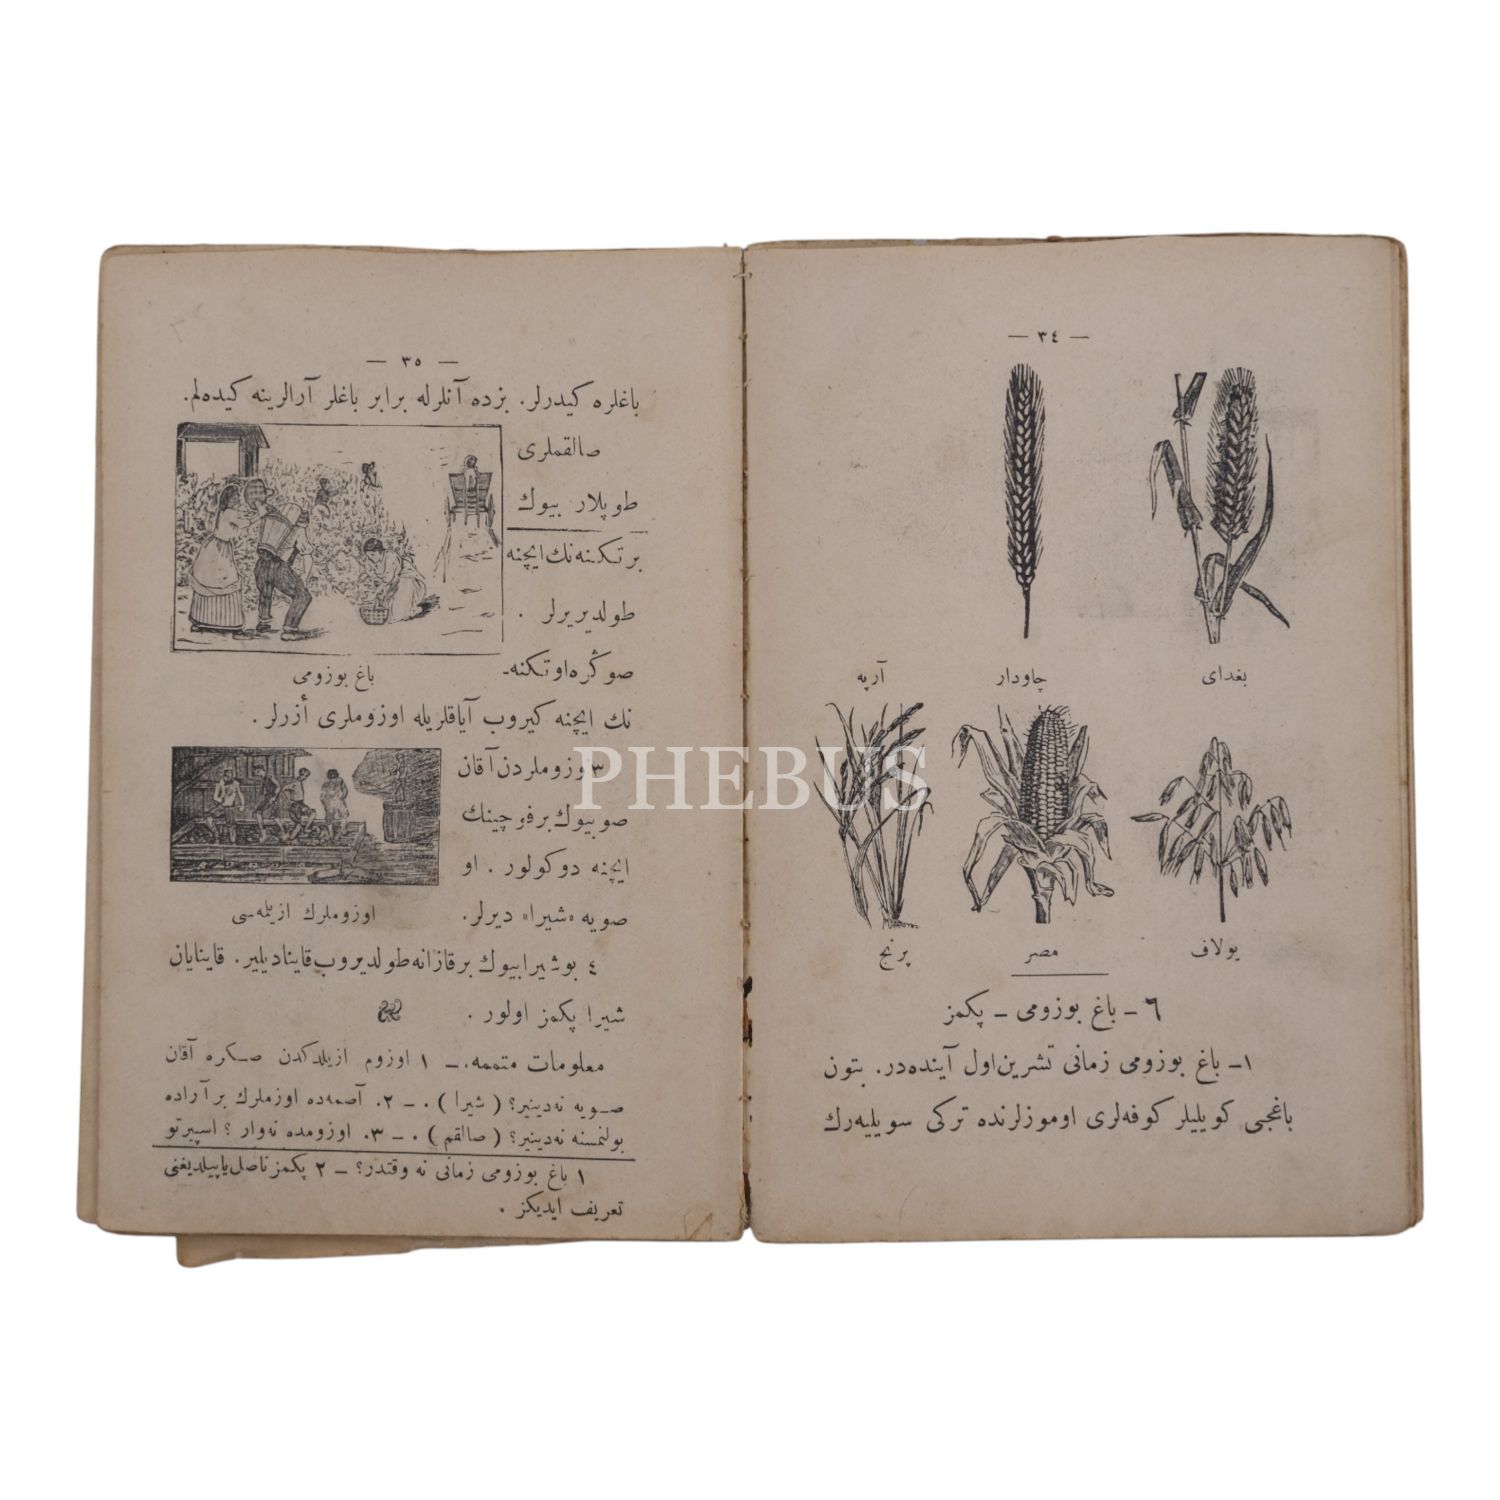 — ٣٤ —
بغدای
چاودار
آرپه
یولاف
مصر
پرنج
٦ – باغ بوزومی – پکمز
١– باغ بوزومی زمانی تشرین اول آینده‌در. بتون
باغجی کویلیلر کوفه‌لری اوموزلرنده ترکی سویلیه‌رك
— ٣٥ —
باغلره کیدرلر. بزده آنلرله برابر باغلر آرالرینه کیده‌لم.
صالقملری
طوپلار بیوك
بر تکنه‌نك ایچنه
طولدیریرلر .
صوڭره او تکنه-
باغ بوزومی
نك ایچنه کیروب آیاقلریله اوزوملری أزرلر .
٣ اوزوملردن آقان
صو بیوك بر فوچینك
ایچنه دوکولور . او
صویه «شیرا» دیرلر.
اوزوملرك ازیلمه‌سی
٤ بو شیرا بیوك بر قازانه طولدیروب قاینادیلیر. قاینایان
شیرا پکمز اولور .
معلومات متممه. – ١ اوزوم ازیلدکدن صکره آقان
صویه نه‌دینیر؟ ( شیرا ) . – ٢. آصمه‌ده اوزملرك بر آراده
بولنمسنه نه‌دینیر؟ ( صالقم ) . – ٣. اوزومده نه‌وار ؟ اسپیرتو
١ باغ بوزومی زمانی نه وقتدر؟ – ٢ پکمز ناصل یاپیلدیغنی
تعریف ایدیکز .
PHEBUS